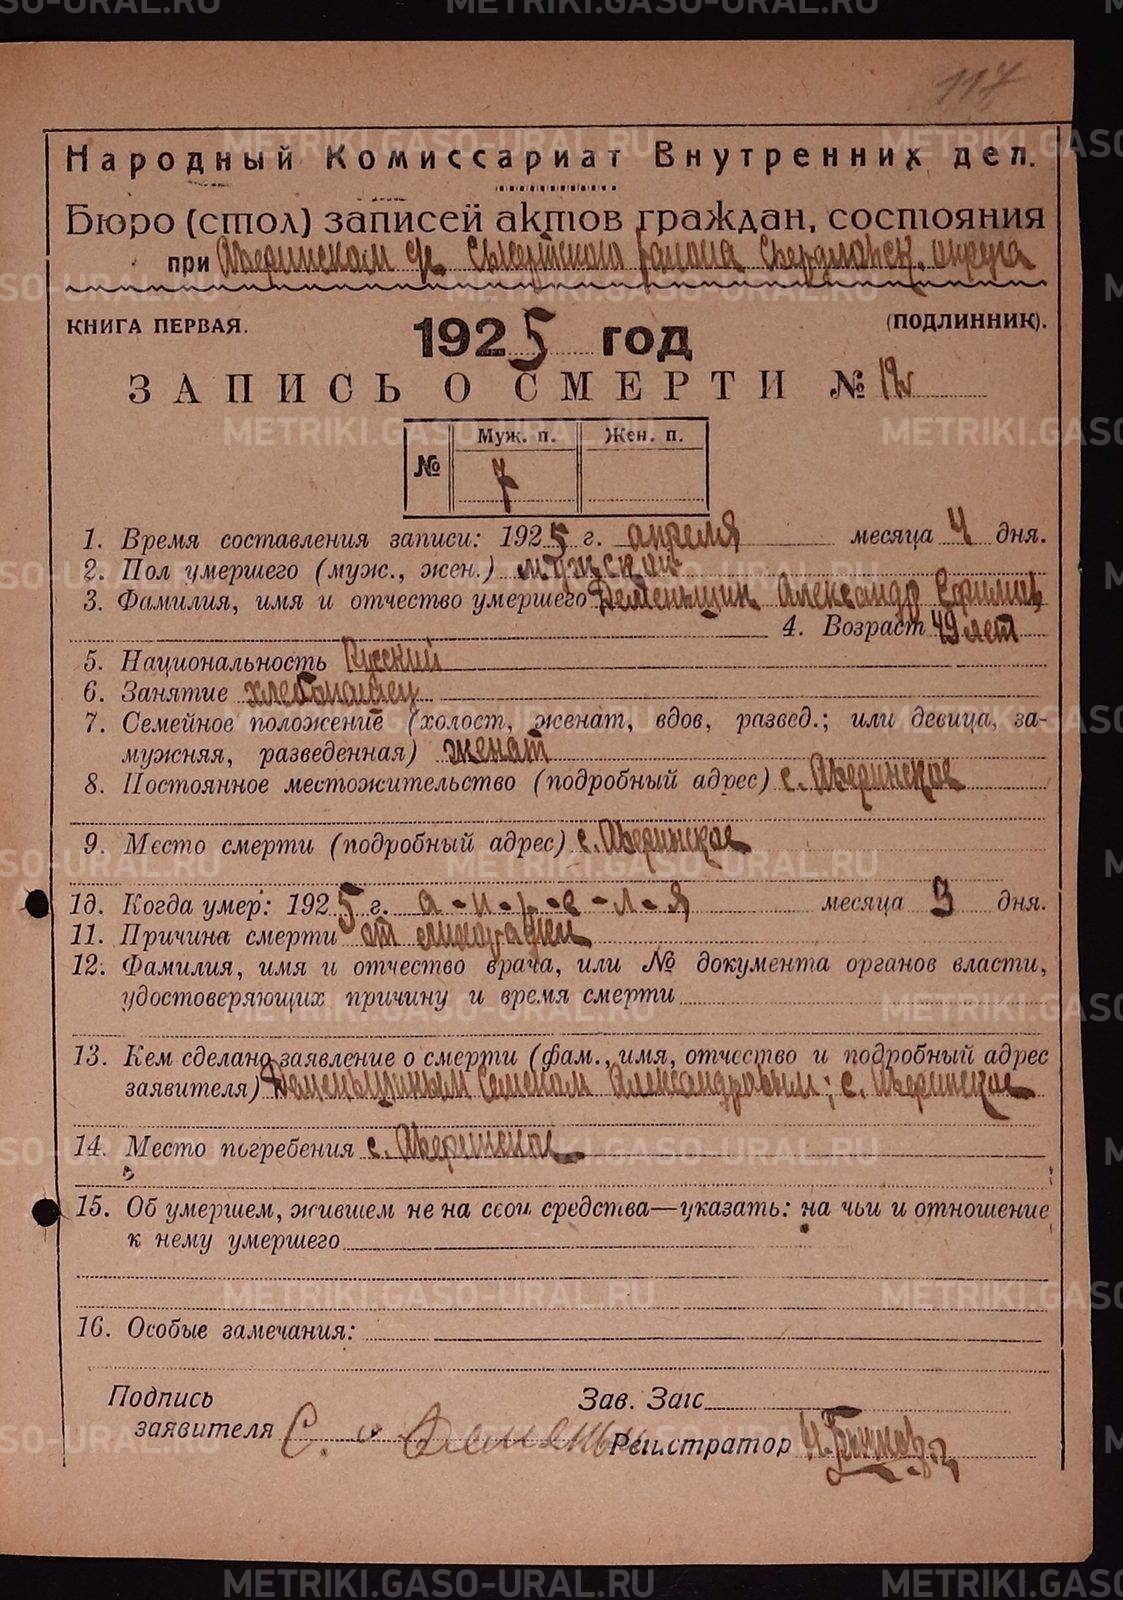 117
Народный Комиссариат Внутренних дел.
Бюро (стол) записей актов граждан, состояния
при Аверинском с/с. Сысертского района Свердловск. округа
КНИГА ПЕРВАЯ.
1925 год
(ПОДЛИННИК).
ЗАПИСЬ О СМЕРТИ № 12
№ Муж. п. Жен. п.
7
1. Время составления записи: 1925 г. апреля месяца 4 дня.
2. Пол умершего (муж., жен.) мужской
3. Фамилия, имя и отчество умершего Деменьшин Александр Ефимов
4. Возраст 49 лет
5. Национальность Русский
6. Занятие хлебопашец
7. Семейное положение (холост, женат, вдов, развед.; или девица, за-
мужняя, разведенная) женат
8. Постоянное местожительство (подробный адрес) с. Аверинское
9. Место смерти (подробный адрес) с. Аверинское
10. Когда умер: 1925 г. а-п-р-е-л-я месяца 3 дня.
11. Причина смерти от лихорадки
12. Фамилия, имя и отчество врача, или № документа органов власти,
удостоверяющих причину и время смерти
13. Кем сделано заявление о смерти (фам., имя, отчество и подробный адрес
заявителя) Деменьшиным Семеном Александровым; с. Аверинское
14. Место погребения с. Аверинское
15. Об умершем, жившем не на свои средства—указать: на чьи и отношение
к нему умершего
16. Особые замечания:
Подпись
заявителя С. Деменьшин
Зав. Загс
Регистратор
METRIKI.GASO-URAL.RU